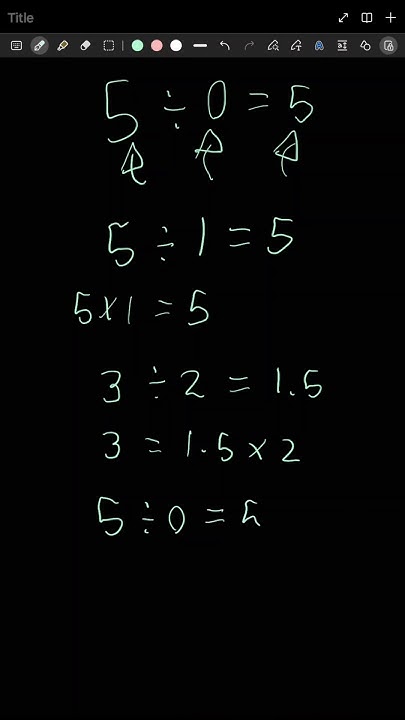 Title
5 ÷ 0 = 5
5 ÷ 1 = 5
5 x 1 = 5
3 ÷ 2 = 1.5
3 = 1.5 x 2
5 ÷ 0 =